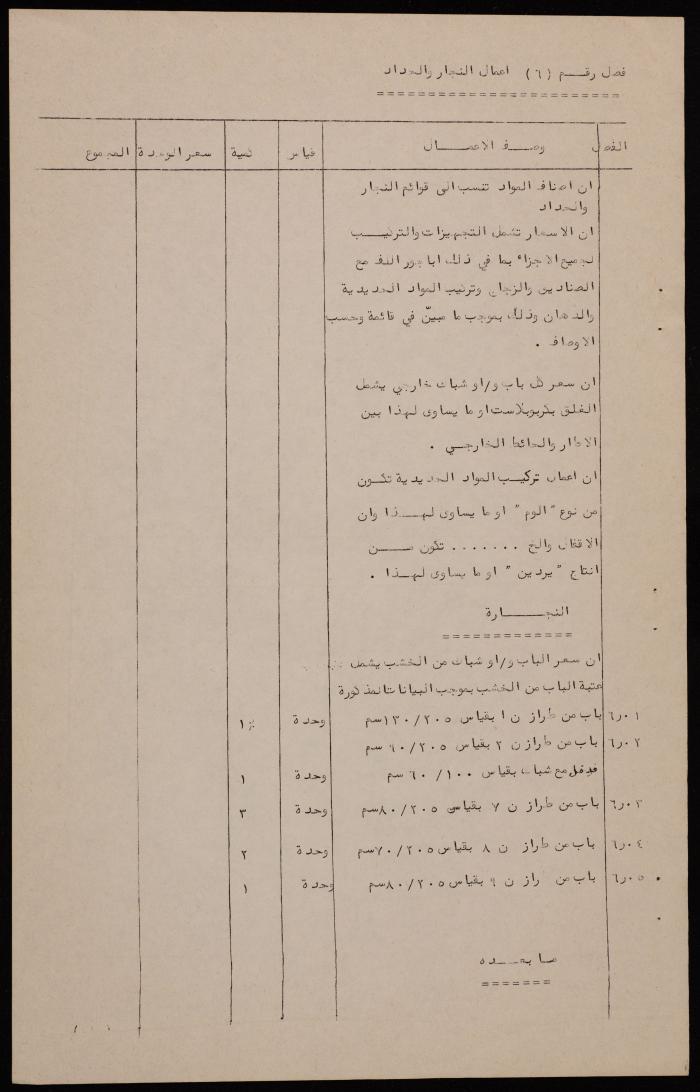 فصل رقـــم (٦) اعمال النجار والحداد
الفصل وصــف الاعمــــال قياس كمية سعر الوحدة المجموع
ان اصناف المواد تنسب الى قوائم النجار
والحداد
ان الاسعار تشمل التجهيزات والتركيــب
لجميع الاجزاء بما في ذلك اباجور اللف مع
الصناديق والزجاج وتركيب المواد الحديدية
والدهان وذلك بموجب ما مبيّن في قائمة وحسب
الاوصاف .
ان سعر كل باب و/او شباك خارجي يشمل
الغلق بكربوبلاست او ما يساوى لهذا بين
الاطار والحائط الخارجــي .
ان اعمال تركيــب المواد الحديدية تكــون
من نوع "الوم" او ما يساوى لهــذا وان
الاقفال والخ ....... تكون مـــن
انتاج "يردين" او ما يساوى لهــذا .
النجـــــارة
ان سعر الباب و/او شباك من الخشب يشمل
عتبة الباب من الخشب بموجب البيانات المذكورة
٦ر٠١ باب من طراز ن ١ بقياس ١٣٠/٢٠٥سم وحدة ١
٦ر٠٢ باب من طراز ن ٢ بقياس ٩٠/٢٠٥ سم
مع شباك بقياس ٦٠/١٠٠ سم وحدة ١
٦ر٠٣ باب من طراز ن ٧ بقياس ٨٠/٢٠٥سم وحدة ٣
٦ر٠٤ باب من طراز ن ٨ بقياس ٧٠/٢٠٥سم وحدة ٢
٦ر٠٥ باب من راز ن ٩ بقياس ٨٠/٢٠٥سم وحدة ١
مـا بعــده